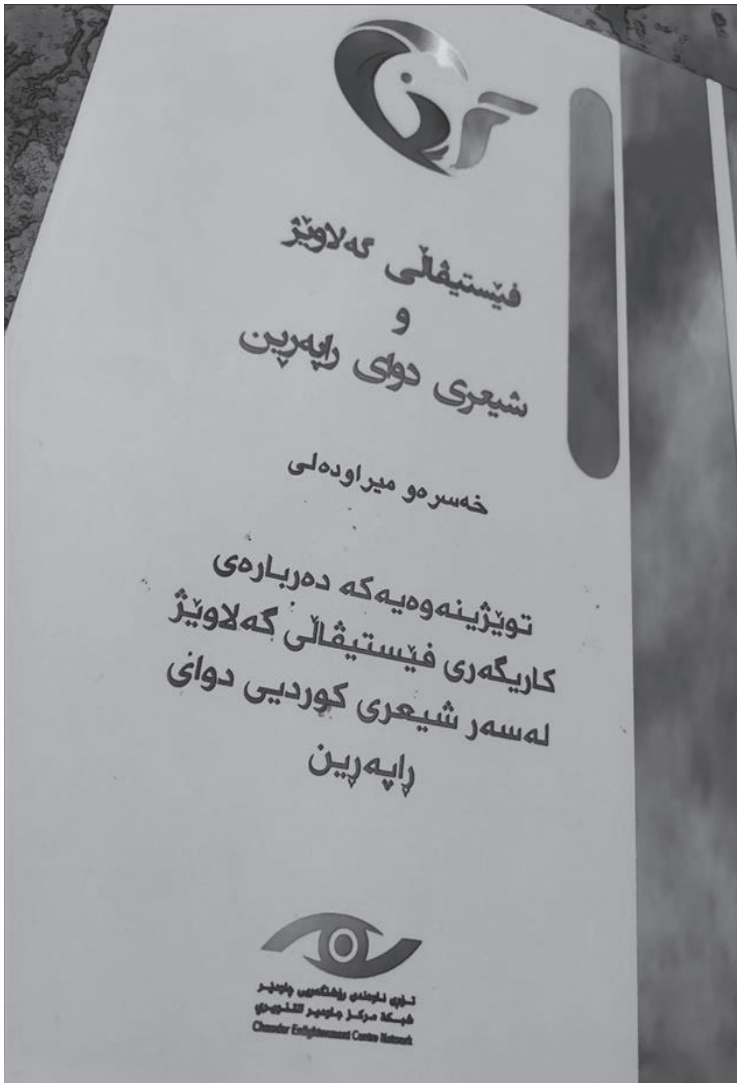 فێستیڤاڵی گەلاوێژ
و
شیعری دوای ڕاپەڕین
خەسرەو میراودەلی
توێژینەوەیەکە دەربارەی
کاریگەری فێستیڤاڵی گەلاوێژ
لەسەر شیعری کوردیی دوای
ڕاپەڕین
تۆڕی ناوەندی ڕۆشنگەریی چاودێر
شبكة مركز جاودير التنويري
Chawder Enlightenment Centre Network